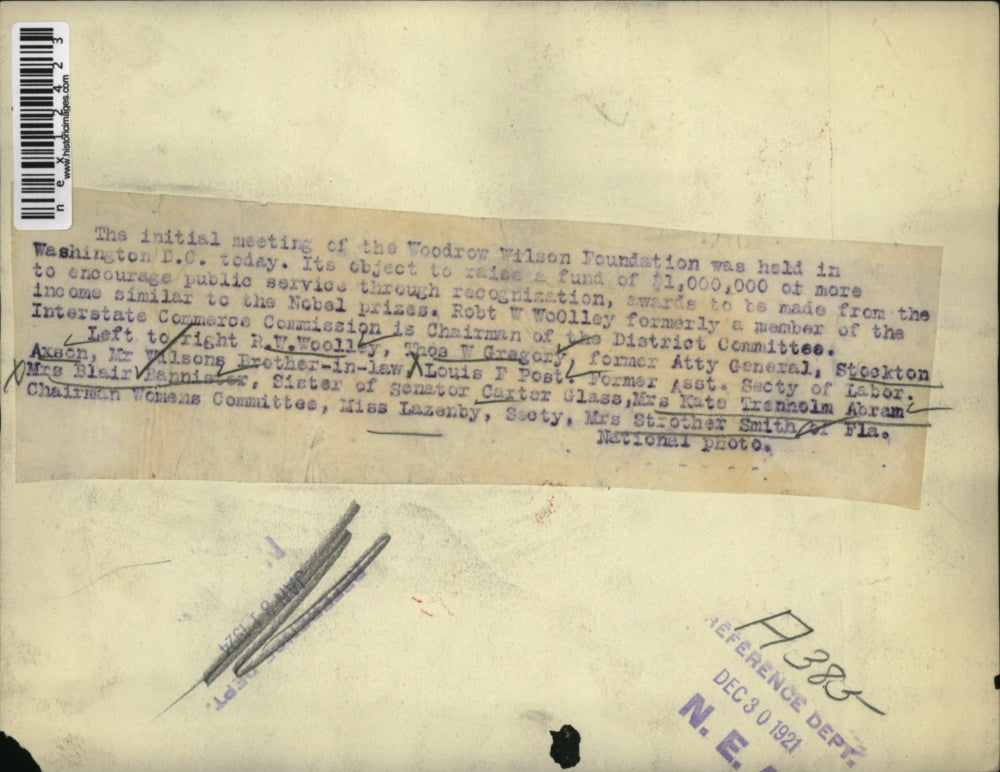 nex12423
www.historicimages.com
The initial meeting of the Woodrow Wilson Foundation was held in
Washington D.C. today. Its object to raise a fund of $1,000,000 or more
to encourage public service through recognization, awards to be made from the
income similar to the Nobel prizes. Robt W WoOlley formerly a member of the
Interstate Commerce Commission is Chairman of the District Committee.
Left to right R.W.Woolley, Thos W Gregory, former Atty General, Stockton
Axson, Mr Wilsons Brother-in-law, Louis F Post. Former Asst. Secty of Labor.
Mrs Blair Bannister, Sister of senator Carter Glass,Mrs Kate Trenholm Abram
Chairman Womens Committee, Miss Lazenby, Secty, Mrs Strother Smith of Fla.
National photo.
JAN 1924
DEPT.
A385
REFERENCE DEPT.
DEC 30 1921
N. E. A